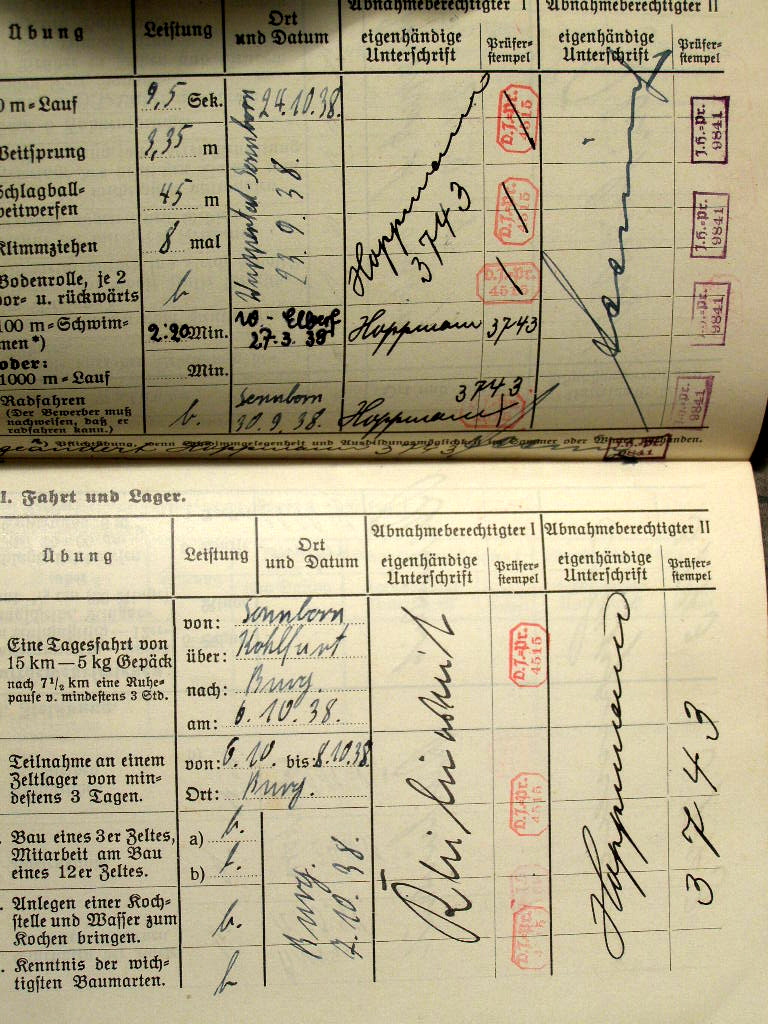 Abnahmeberechtigter I Abnahmeberechtigter II
Übung Leistung Ort
und Datum eigenhändige
Unterschrift Prüfer-
stempel eigenhändige
Unterschrift Prüfer-
stempel
0 m-Lauf 9,5 Sek. 24.10.38.
Weitsprung 3,35 m
Schlagball-
weitwerfen 45 m
Klimmziehen 8 mal
Wuppertal-Sonnborn
23.9.38.
Hoppmann
3743
D.J.-Pr.
4515
D.J.-Pr.
4515
J.H.-Pr.
9841
J.H.-Pr.
9841
Bodenrolle, je 2
vor- u. rückwärts b.
D.J.-Pr.
4515
J.H.-Pr.
9841
100 m-Schwim-
men*) 2:20 Min. W.-Elberf
27.3.39 Hoppmann 3743
oder:
1000 m-Lauf Min.
Radfahren
(Der Bewerber muß
nachweisen, daß er
radfahren kann.) b. Sonnborn
30.9.38. Hoppmann 3743
J.H.-Pr.
9841
*) Pflichtübung, wenn Schwimmgelegenheit und Ausbildungsmöglichkeit im Sommer oder Winter vorhanden.
geändert Hoppmann 3743
J.H.-Pr.
9841
I. Fahrt und Lager.
Abnahmeberechtigter I Abnahmeberechtigter II
Übung Leistung Ort
und Datum eigenhändige
Unterschrift Prüfer-
stempel eigenhändige
Unterschrift Prüfer-
stempel
Eine Tagesfahrt von
15 km—5 kg Gepäck
nach 7½ km eine Ruhe-
pause v. mindestens 3 Std.
von: Sonnborn
über: Kohlfurt
nach: Burg.
am: 6.10.38.
D.J.-Pr.
4515
Teilnahme an einem
Zeltlager von min-
destens 3 Tagen.
von: 6.10. bis: 8.10.38
Ort: Burg.
D.J.-Pr.
4515
Hoppmann
3743
Bau eines 3er Zeltes,
Mitarbeit am Bau
eines 12er Zeltes.
a) b.
b) b.
Burg.
7.10.38.
Anlegen einer Koch-
stelle und Wasser zum
Kochen bringen. b.
D.J.-Pr.
4515
Kenntnis der wich-
tigsten Baumarten. b